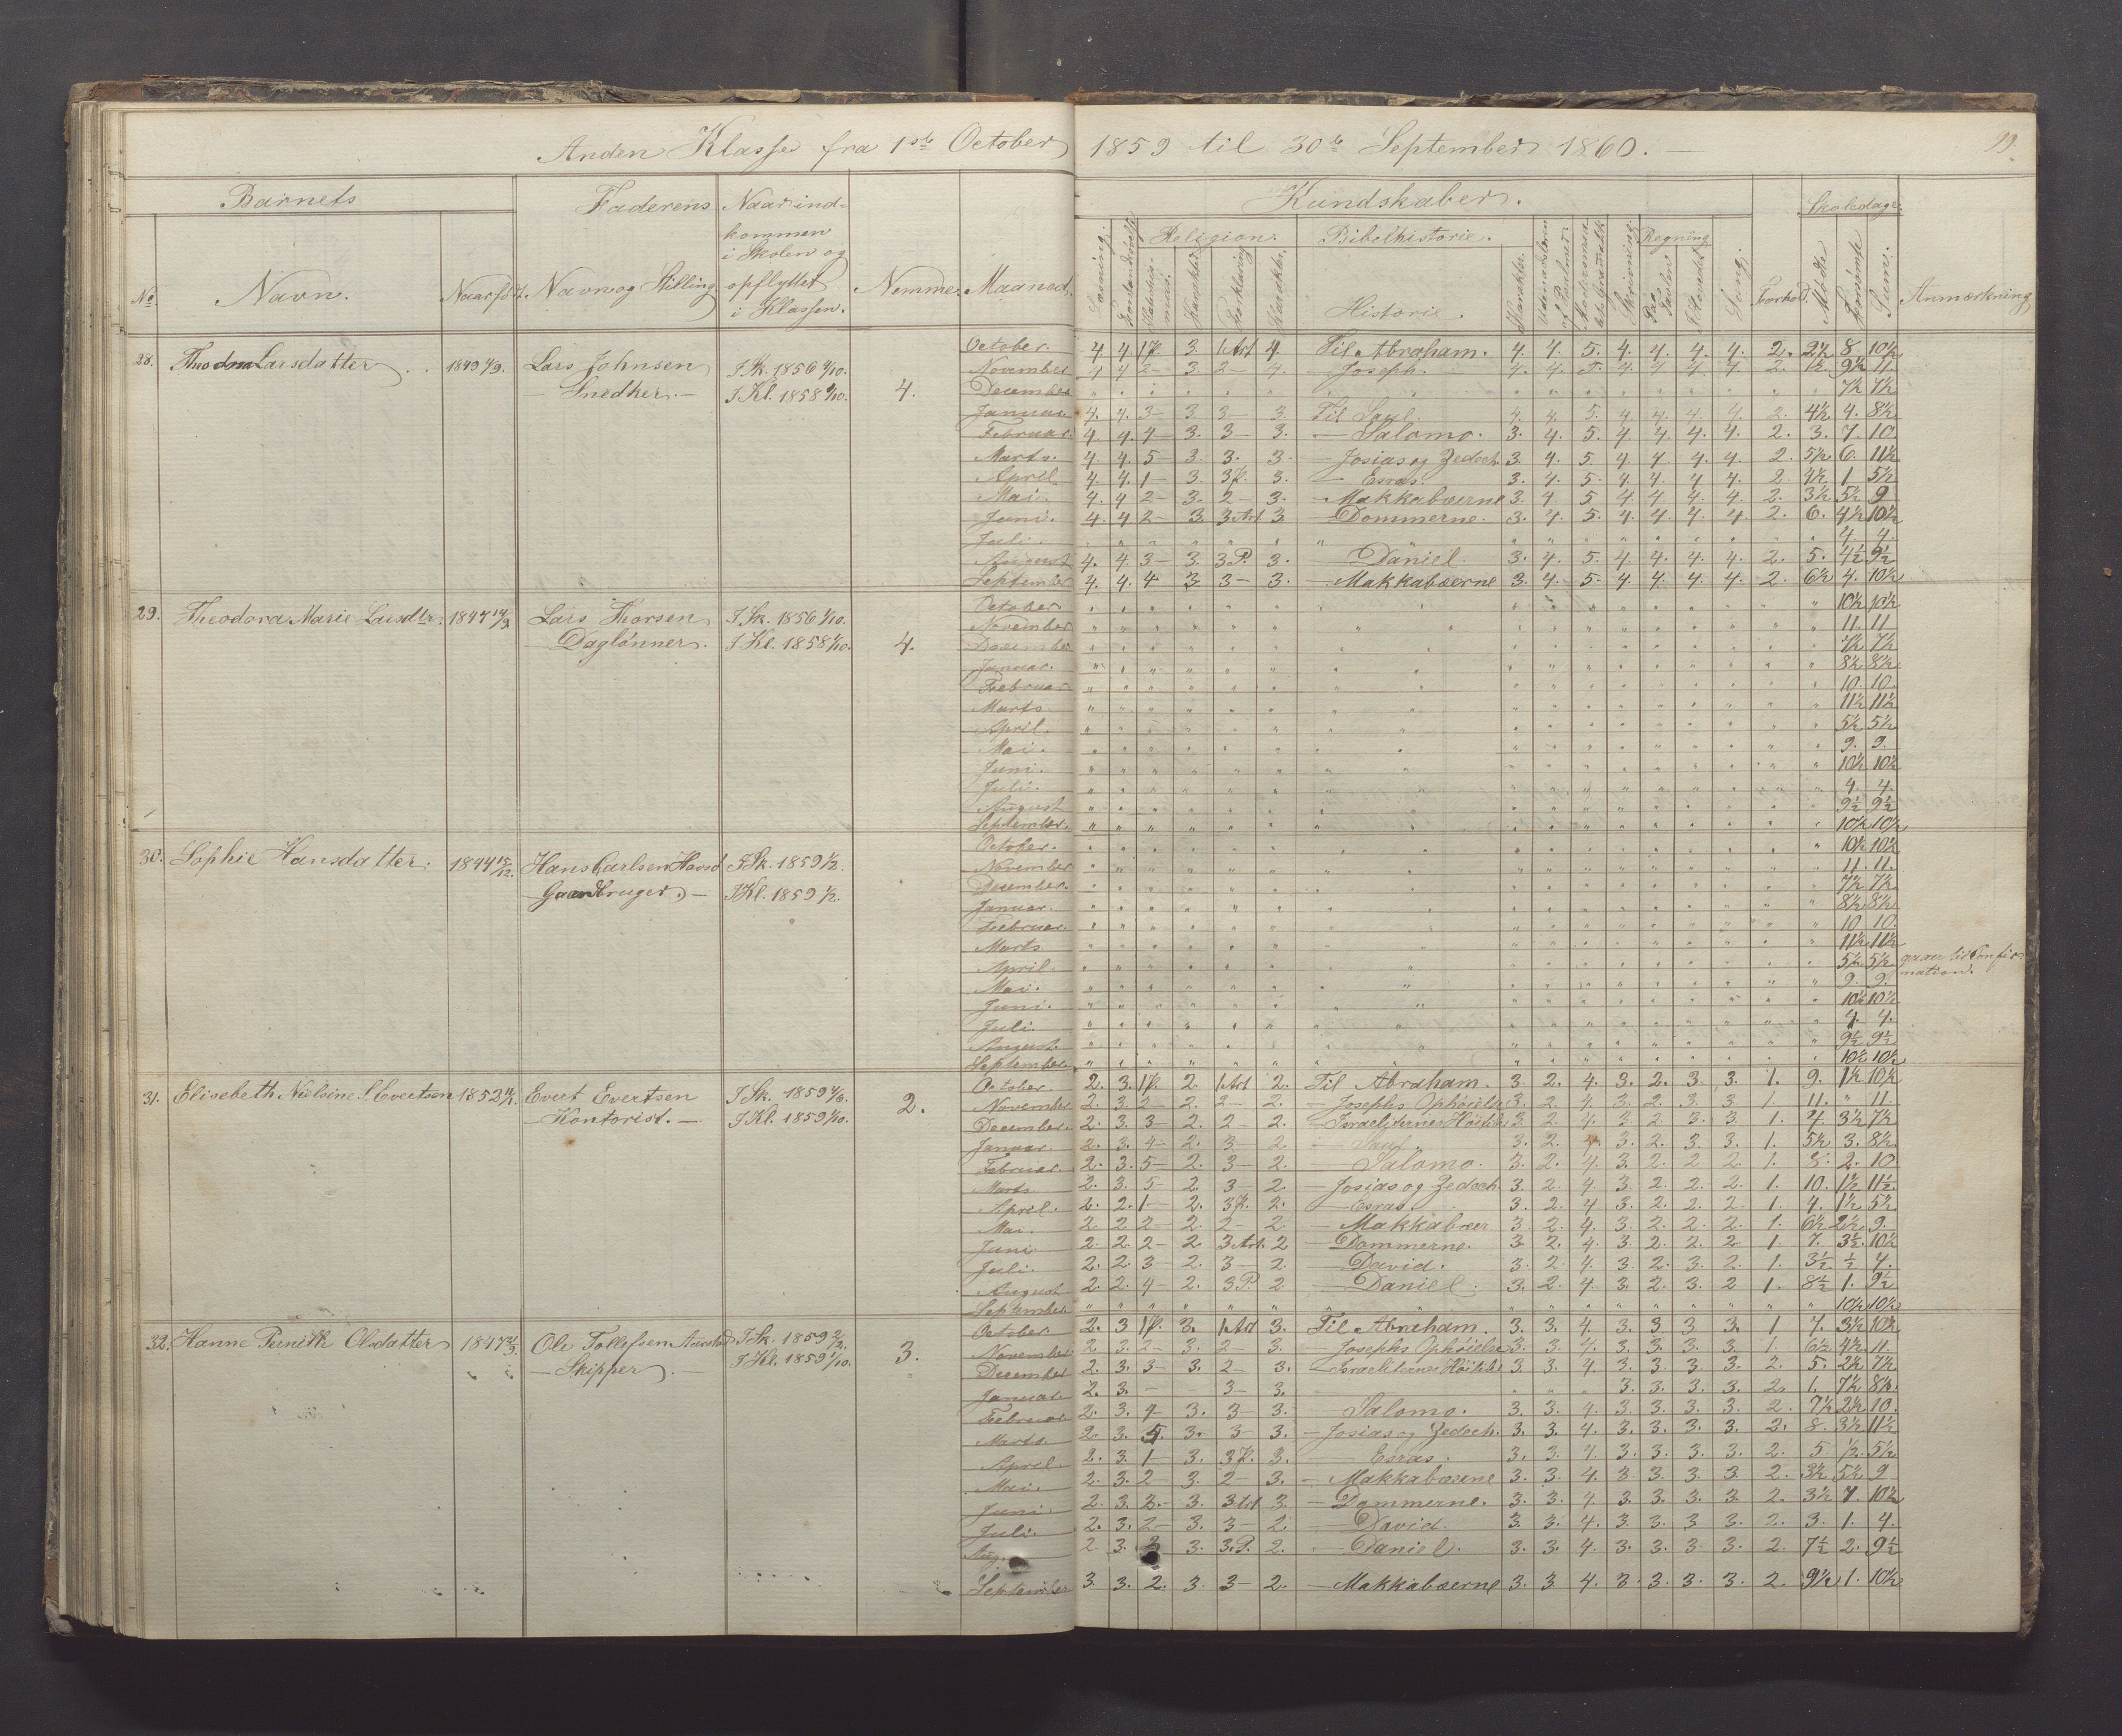 Anden Klasse fra 1ste October 1859 til 30te September 1860.
99.
Barnets
Faderens
Naar ind-
kommen
i Skolen og
opflyttet
i Klassen.
No
Navn.
Naar født.
Navn og Stilling
Nemme.
Maaned.
Kundskaber.
Skoledage.
Læsning.
Religion.
Bibelhistorie.
Regning
Karakter.
Forklaring
Karakter.
Historie.
Karakter.
Skrivning
Paa Tavlen
I Hovedet
Sang.
Forhold.
Mødte
Forsømte
Sum.
Anmærkning
28. Theodora Larsdatter 1849 Lars Johnsen I Sk. 1856 1/10.
Snedker. I Kl. 1858 1/10. 4.
October. 4. 4. 1 P. 3. 1 Art 4. Til Abraham. 4. 4. 5. 4. 4. 4. 4. 2. 2½ 8 10½
November 4 4 2 – 3 2 – 4. – Joseph. 4. 4. 5. 4. 4 4 4 2. 1½ 9½ 11.
December " " " " " " " " " " " " " " " " 7½ 7½
Januar 4. 4. 3 – 3. 3 – 3. Til Saul. 4. 4. 5. 4. 4. 4. 4. 2. 4½ 4. 8½
Februar. 4. 4. 4 – 3. 3 – 3. – Salomo. 3. 4. 5. 4. 4. 4. 4. 2. 3. 7. 10.
Marts. 4. 4. 5 – 3. 3. 3. – Josias og Zedech. 3. 4. 5. 4. 4. 4. 4. 2. 5½ 6. 11½
April 4. 4. 1 – 3. 3 P. 3. – Esras. 3. 4. 5. 4. 4. 4. 4. 2. 4½ 1 5½
Mai. 4. 4 2 – 3. 2 – 3. – Makkabæerne 3. 4. 5 4 4 4. 4. 2. 3½ 5½ 9
Juni. 4. 4 2 – 3. 3 Art 3. – Dommerne. 3. 4. 5. 4. 4. 4. 4. 2. 6. 4½ 10½
Juli. " " " " " " " " " " " " " " " 4 4.
August 4. 4. 3 – 3. 3 P. 3. Daniel. 3. 4. 5. 4. 4. 4. 4. 2. 5. 4½ 9½
September 4. 4. 4 3. 3 – 3. – Makkabæerne 3. 4. 5. 4. 4. 4. 4. 2. 6½ 4. 10½
29. Theodora Marie Larsdtr. 1847 Lars Thorsen I Sk. 1856 1/10.
Daglønner. I Kl. 1858 1/10. 4.
October 10½ 10½
November 11. 11
December 7½ 7½
Januar. 8½ 8½
Februar 10. 10.
Marts 11½ 11½
April. 5½ 5½
Mai. 9. 9.
Juni. 10½ 10½
Juli. 4. 4.
August 9½ 9½
September. 10½ 10½
30. Sophie Hansdatter. 1844 15/12. Hans Carlsen I Sk. 1859 ½.
Gaardbruger. – I Kl. 1859 ½.
October. 10½ 10½
November 11. 11.
December. 7½ 7½
Januar. 8½ 8½
Februar. 10 10.
Marts 11½ 11½
April. 5½ 5½ gaaer til Confir-
mation.
Mai. 9. 9.
Juni. 10½ 10½
Juli. 4. 4.
August. 9½ 9½
September. 10½ 10½
31. Elisabeth Nielsine S. Evertsen 1852 Evert Evertsen I Sk. 1859
Kontorist. – I Kl. 1859 1/10. 2.
October. 2. 3. 1 P. 2. 1 Art 2. Til Abraham. 3. 2. 4. 3. 2. 3. 3. 1. 9. 1½ 10½
November 2. 3. 2 – 2. 2 – 2. – Josephs Ophøielse 3. 2 4. 3. 2. 3. 3 1 11. " 11.
December. 2. 3. 3 – 2. 2 – 2. – Israeliternes 3. 2 4. 3 2. 3. 3. 1. 4. 3½ 7½
Januar. 2. 3. 4 – 2. 3 – 2. – Saul. 3. 2. 4 3. 2. 3. 3. 1. 5½ 3. 8½
Februar. 2. 3. 5 – 2. 3 – 2. – Salomo. 3. 2. 4. 3. 2. 2 2. 1. 8. 2. 10
Marts 2. 3. 5 – 2 3 – 2. – Josias og Zedech. 3. 2. 4. 3 2. 2. 2. 1. 10. 1½ 11½
April. 2. 2. 1 – 2. 3 P. 2. – Esras. 3. 2. 4 3. 2. 2. 2 1. 4. 1½ 5½
Mai 2. 2 2 – 2. 2 – 2 – Makkabæer 3. 2. 4. 3. 2 2. 2. 1. 6½ 2½ 9.
Juni 2. 2. 2 – 2. 3 Art. 2 – Dommerne. 3. 2. 4. 3 2. 2. 2 1. 7. 3½. 10½
Juli. 2. 2. 3 – 2. 3 – 2. – David. 3. 2 4. 3. 2. 3. 2. 1. 3½ ½ 4.
August 2. 2. 4 – 2. 3 P. 2 – Daniel. 3. 2 4. 3. 2. 3. 2 1. 8½ 1. 9½
September 10½ 10½
32. Hanne Olsdatter 1847 Ole Tollefsen I Sk. 1859
Skipper. – I Kl. 1859 1/10. 3.
October 2. 3 1 P. 3. 1 Art 3. Til Abraham. 3. 3. 4. 3. 3 3. 3. 1 7. 3½ 10½
November 2 3. 2 – 3. 2 – 3. – Josephs Ophøielse 3. 3. 4. 3. 3. 3. 3 1. 6½ 4½ 11.
December 2. 3. 3 – 3. 2 – 3. – Israeliternes 3. 3. 4. 3. 3. 3. 3. 2. 5. 2½ 7½
Januar 2. 3. – 3 – 3. 3. 3. 3. 3. 2. 1. 7½ 8½.
Februar 2. 3. 4 – 3. 3 – 3. Salomo. 3. 3. 4. 3. 3. 3. 3. 2. 7½ 2½ 10.
Marts. 2. 3. 5. 3. 3 – 3. – Josias og Zedech. 3. 3. 4. 3. 3. 3. 3. 2. 8. 3½ 11½
April. 2. 3. 1 – 3. 3 P. 3. – Esras. 3. 3. 4. 3. 3. 3. 3. 2. 5 ½. 5½
Mai. 2. 3. 2 – 3. 2 – 3. – Makkabæerne 3. 3. 4. 3 3. 3. 3. 2. 3½ 5½ 9
Juni 2. 3. 2. – 3. 3 Art 3. – Dommerne. 3. 3. 4. 3. 3. 3. 3. 2. 3½ 7. 10½
Juli. 2. 3. 2 – 3. 3 – 2. – David. 3. 3. 4. 3. 3. 3. 3. 2. 3. 1. 4.
Aug. 2. 3. 3. 3. P. 2. – Daniel. 3. 3. 4. 3. 3. 3. 3. 2. 7½ 2. 9½
September 3. 3. 2. 3. 3 – 2. – Makkabæerne 3. 3 4. 3. 3. 3. 3. 2. 9½ 1. 10½